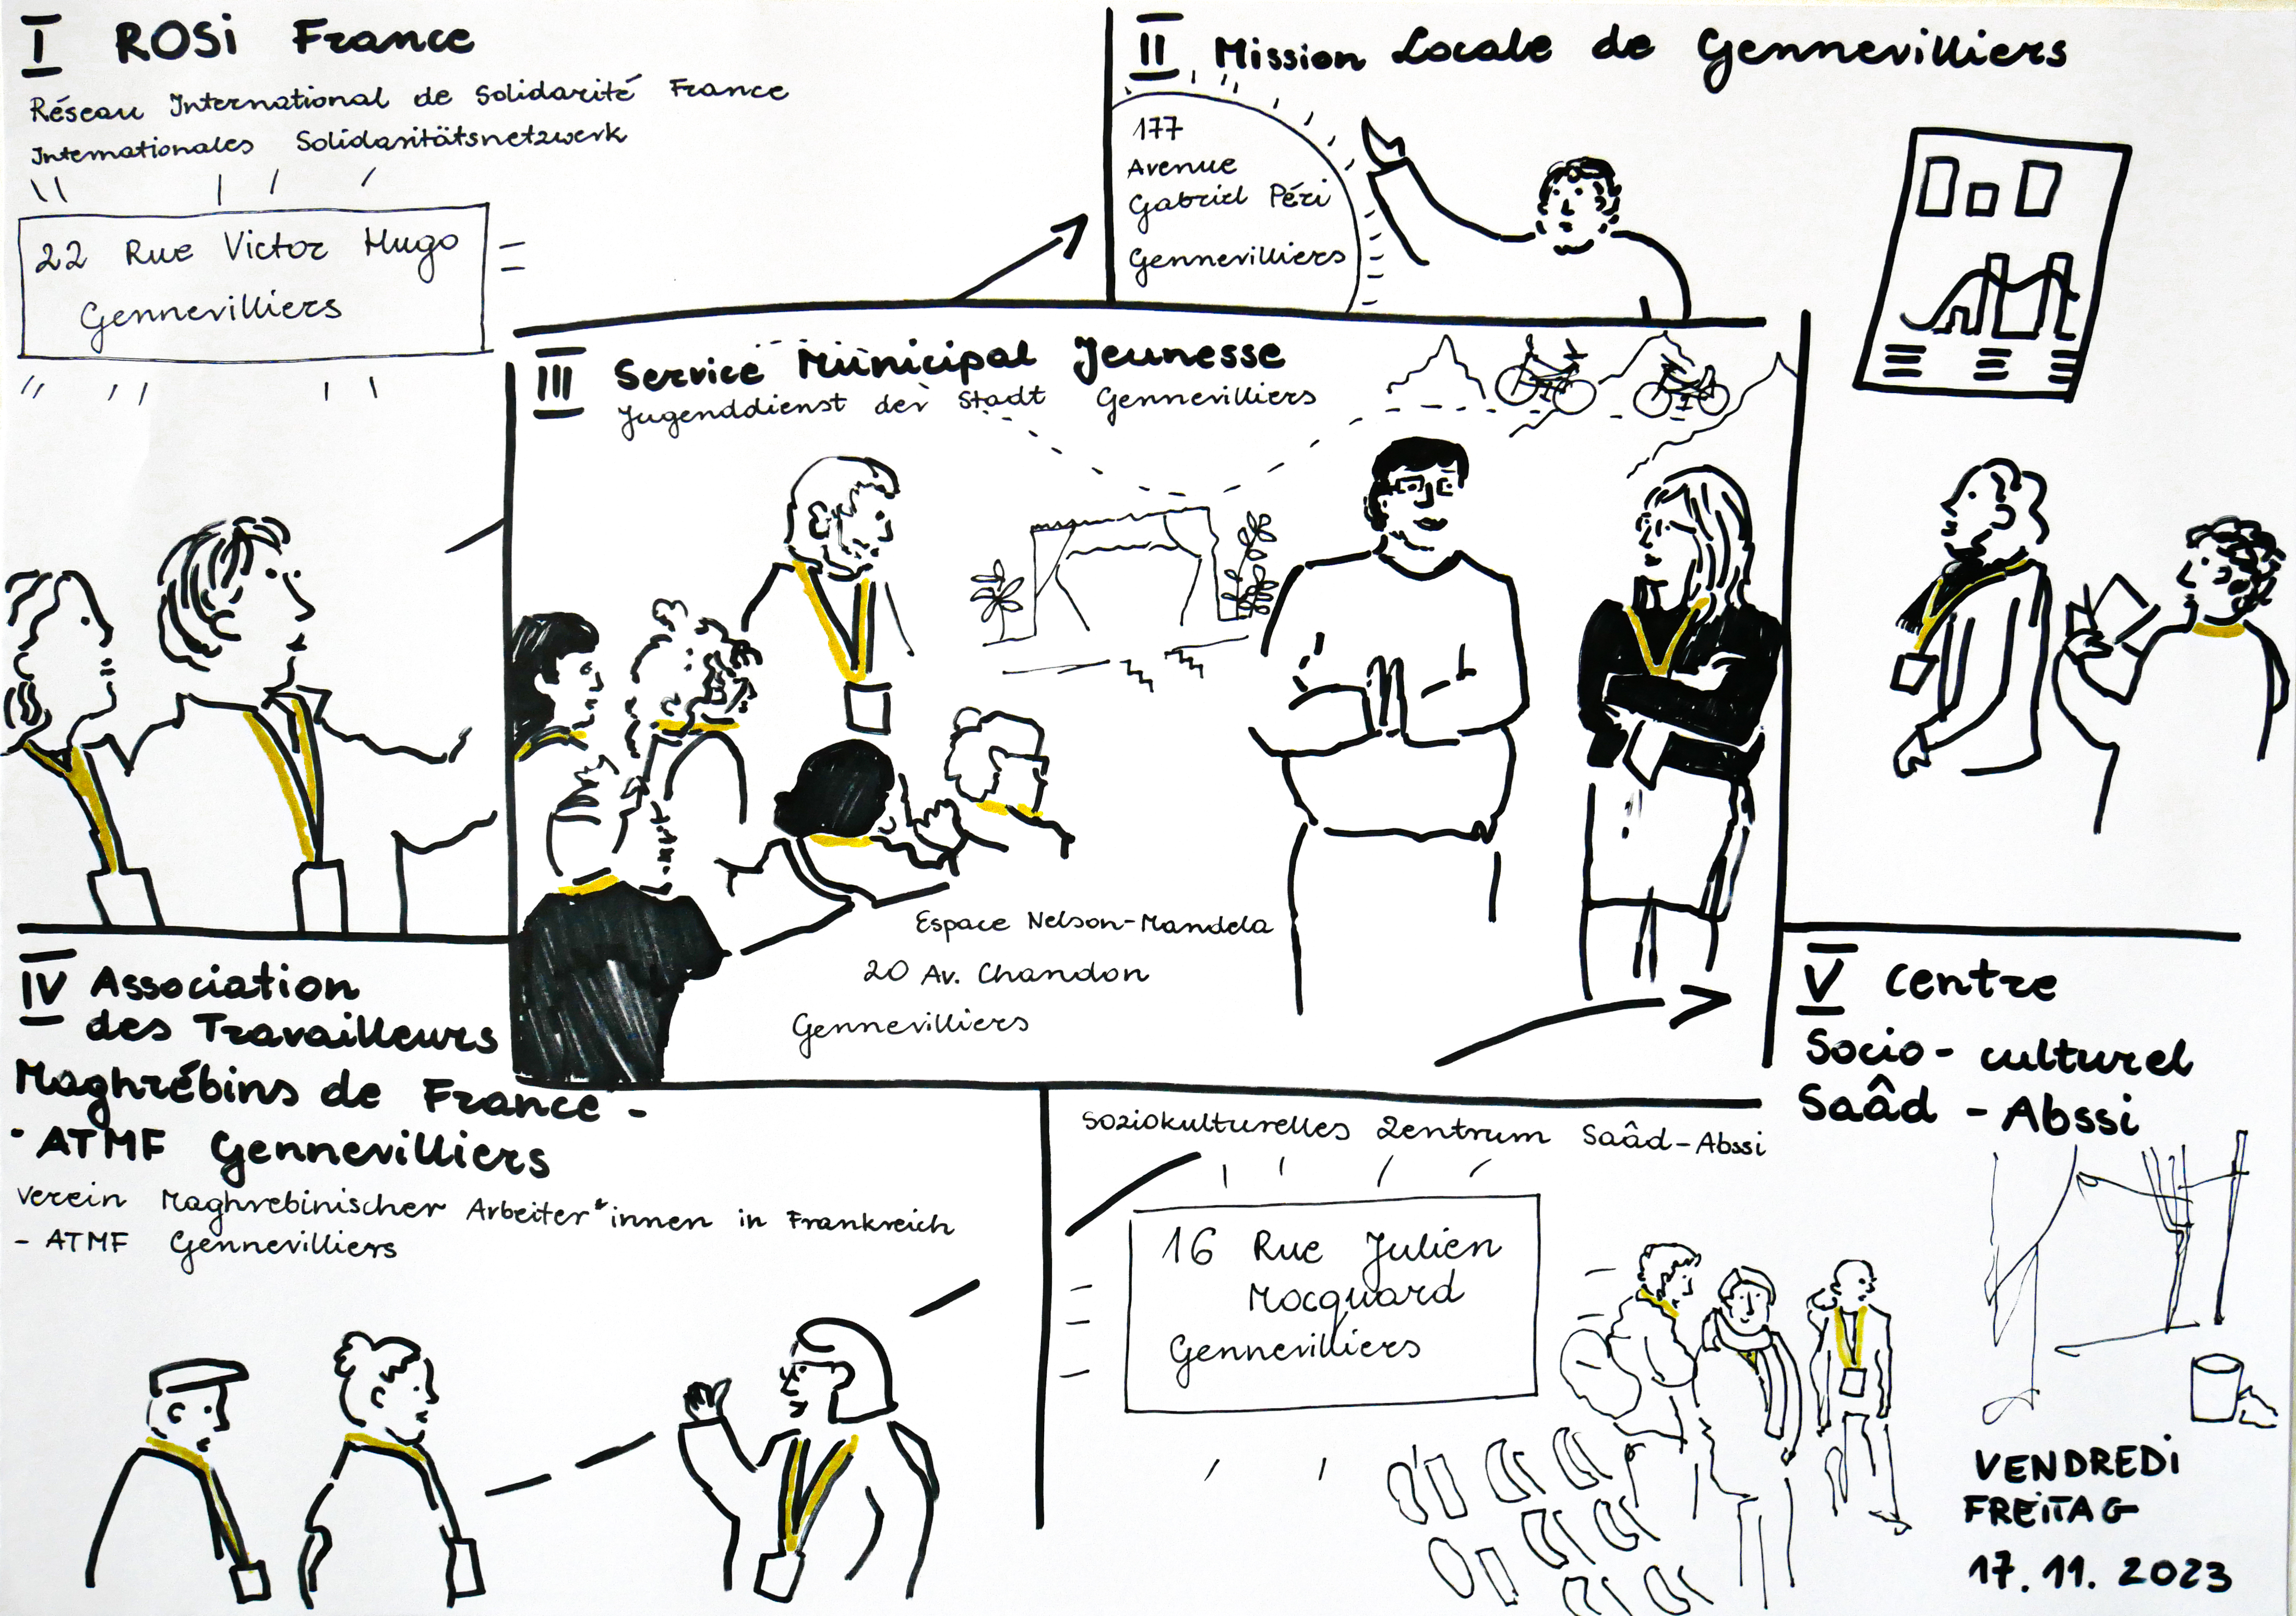 I ROSi France
Réseau International de Solidarité France
Internationales Solidaritätsnetzwerk
22 Rue Victor Hugo
Gennevilliers
II Mission Locale de Gennevilliers
177
Avenue
Gabriel Péri
Gennevilliers
III Service Municipal Jeunesse
Jugenddienst der Stadt Gennevilliers
Espace Nelson-Mandela
20 Av. Chandon
Gennevilliers
IV Association
des Travailleurs
Maghrébins de France -
- ATMF Gennevilliers
Verein Maghrebinischer Arbeiter*innen in Frankreich
- ATMF Gennevilliers
V Centre
Socio-culturel
Saâd-Abssi
Soziokulturelles Zentrum Saâd-Abssi
16 Rue Julien
Mocquard
Gennevilliers
VENDREDi
FREiTAG
17.11.2023